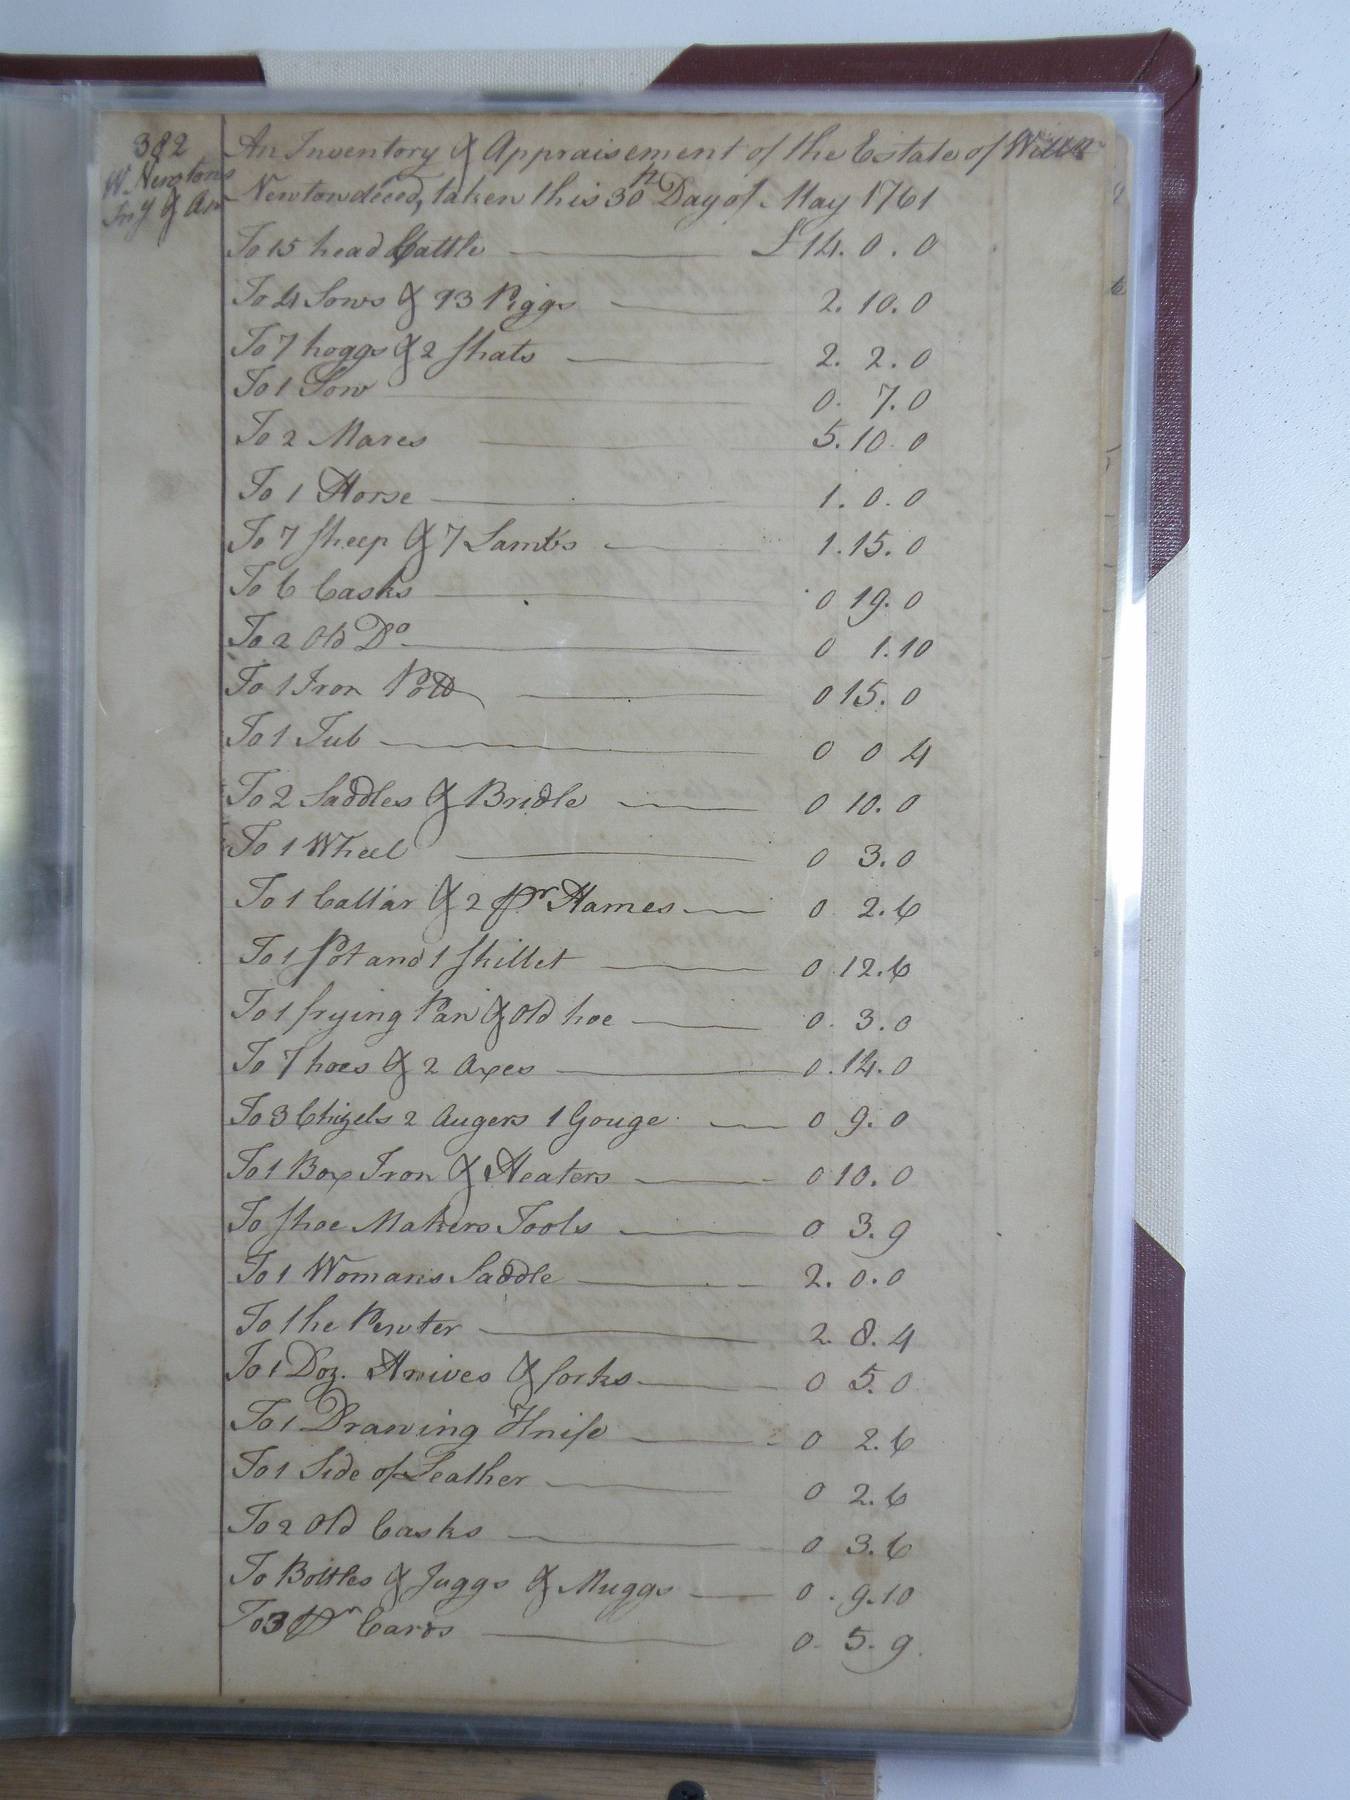 382
W. Newtons
Inv.y & Ap
An Inventory & Appraisement of the Estate of Willm
Newton deced, taken this 30th Day of May 1761
To 15 head Cattle £14. 0. 0
To 4 Sows & 23 Piggs 2. 10. 0
To 7 hoggs & 2 Shats 2. 2. 0
To 1 Sow 0. 7. 0
To 2 Mares 5. 10. 0
To 1 Horse 1. 0. 0
To 7 Sheep & 7 Lambs 1. 15. 0
To 6 Casks 0 19. 0
To 2 Old Do 0 1. 10
To 1 Iron Pott 0 15. 0
To 1 Tub 0 0 4
To 2 Saddles & Bridle 0 10. 0
To 1 Wheel 0 3. 0
To 1 Callar & 2 pr Hames 0 2. 6
To 1 Pot and 1 Skillet 0 12. 6
To 1 frying Pan & Old hoe 0. 3. 0
To 7 hoes & 2 Axes 0. 14. 0
To 3 Chizels 2 Augers 1 Gouge 0 9. 0
To 1 Box Iron & Heaters 0 10. 0
To Shoe Makers Tools 0 3. 9
To 1 Womans Saddle 2. 0. 0
To the Pewter 2. 8. 4
To 1 Doz. Knives & forks 0 5. 0
To 1 Drawing Knife 0 2. 6
To 1 Side of Leather 0 2. 6
To 2 Old Casks 0 3. 6
To Bottles & Juggs & Muggs 0. 9. 10
To 3 pr Cards 0. 5. 9